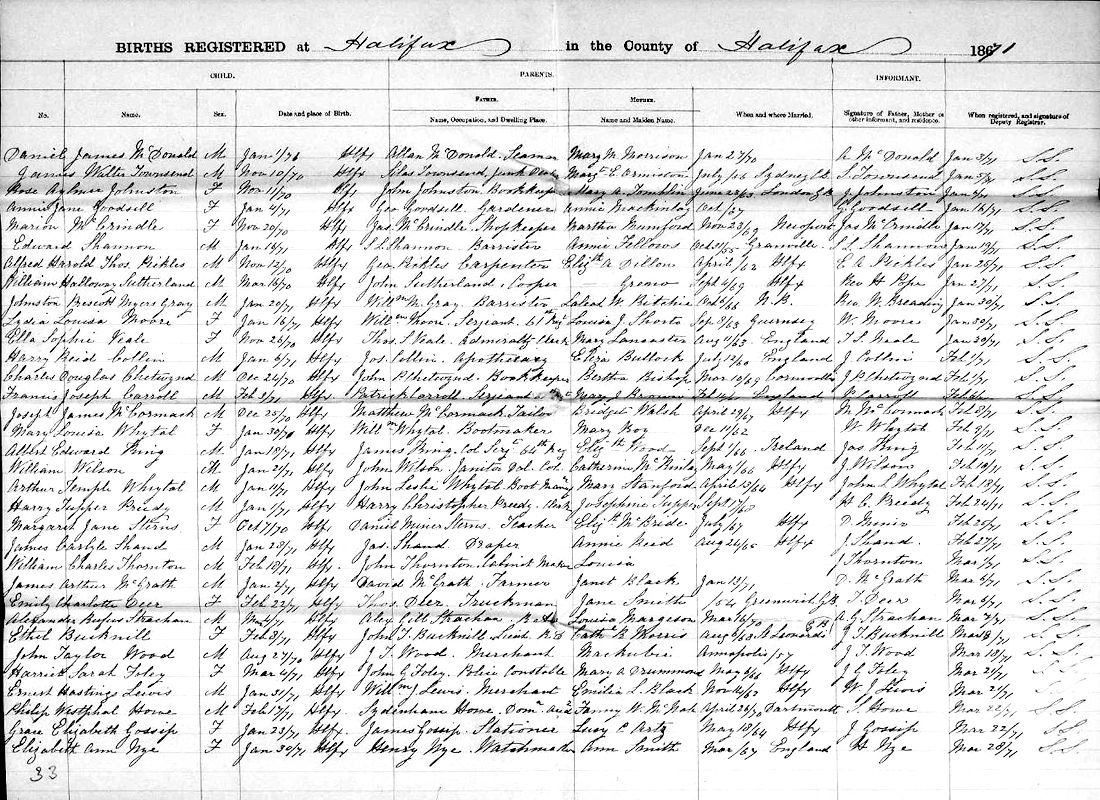 BIRTHS REGISTERED at Halifax in the County of Halifax 1871
CHILD. PARENTS. INFORMANT.
FATHER. MOTHER.
No. Name. Sex. Date and place of Birth. Name, Occupation, and Dwelling Place. Name and Maiden Name. When and where Married. Signature of Father, Mother or other informant, and residence. When registered, and signature of Deputy Registrar.
Daniel James McDonald M Jan 1/71 Hlfx Allan McDonald. Seaman Mary M. Morrison Jan 27/70 A. McDonald Jan 3/71 S.S.
James Willis Townsend M Nov 10/70 Hlfx Silas Townsend, Junk Margt E. Armiston July Sydney S Townsend Jan 3/71 S.S.
Rose Aylmer Johnston F Nov 11/70 Hlfx John Johnston. Bookkeeper Mary A. Tomblin June London GB J. Johnston Jan S.S.
Annie Jane Goodsill F Jan 4/71 Hlfx Geo Goodsill. Gardener Annie Mackinlay Oct /67 G. Goodsill Jan 16/71 S.S.
Marion McCrindle F Nov 20/70 Hlfx Jas. McCrindle. Shopkeeper Martha Mumford Nov 23/69 Newport Jas McCrindle Jan 17/71 S.S.
Edward Shannon M Jan 16/71 Hlfx S.L. Shannon Barrister Annie Fellows Oct Granville. S L Shannon Jan 19/71 S.S.
Alfred Harold Thos. Pickles M Nov 12/70 Hlfx Geo. Pickles Carpenter Elizth A Dillon April /62 Hlfx E A Pickles Jan 25/71 S.S.
William Holloway Sutherland M Mar 16/70 Hlfx John Sutherland. Cooper Greno Sept 4/69 Hlfx Rev H Pope Jan 27/71 S.S.
Johnston Prescott Myers Gray M Jan 20/71 Hlfx Willm M. Gray. Barrister W. Ritchie Oct 5/66 N.B. Rev. W. Breading Jan 30/71 S.S.
Lydia Louisa Moore F Jan 16/71 Hlfx Willm Moore. Sergeant. 61st Regt Louisa J. Shorts Sep 9/63 Guernsey W. Moore Jan 30/71 S.S.
Ella Sophie Veale F Nov 26/70 Hlfx Thos. S. Veale. Admiralty Clerk Mary Lancaster Aug 11/63 England T S Veale Jan 30/71 S.S.
Harry Reid Collin M Jan 6/71 Hlfx Jos. Collin. Apothecary Eliza Bullock July 12/60 England J Collin Feb 1/71 S.S.
Charles Douglas Chetwynd M Dec 24/70 Hlfx John P Chetwynd. Bookkeeper Bertha Bishop Mar 10/69 Cornwallis J P Chetwynd Feb 1/71 S.S.
Francis Joseph Carroll M Feb 3/71 Hlfx Patrick Carroll. Sergeant Mary J Feb England P. Carroll Feb S.S.
Joseph James McCormack M Dec 25/70 Hlfx Matthew McCormack. Tailor Bridget Walsh April 29/67 Hlfx M. McCormack Feb 8/71 S.S.
Mary Louisa Whytal F Jan 30/70 Hlfx Willm Whytal. Bootmaker Mary Roy Dec 11/62 W. Whytal Feb 9/71 S.S.
Albert Edward King M Jan 18/71 Hlfx James King. Col Sergt 61th Regt Elizth Wood Sept 1/66 Ireland Jas King Feb 11/71 S.S.
William Wilson M Jan 2/71 Hlfx John Wilson. Janitor Dal. Col. Catherine McKinlay May /66 Hlfx J. Wilson Feb 18/71 S.S.
Arthur Temple Whytal M Jan 11/71 Hlfx John Leslie Whytal Boot Many Mary Stanford April 13/64 Hlfx John L Whytal Feb 18/71 S.S.
Harry Tupper Priedy M Jan 9/71 Hlfx Harry Christopher Preedy. Clerk Josephine Tupper Sept 17/60 H C Preedy Feb 24/71 S.S.
Margaret Jane Sterns F Oct 7/70 Hlfx Daniel Miner Sterns. Teacher Elizth McBride. July /67 Hlfx D. Miner Feb 25/71 S.S.
James Carlyle Shand M Jan 28/71 Hlfx Jas. Shand. Draper Annie Reid Aug 24/65 Hlfx J. Shand. Feb 27/71 S.S.
William Charles Thornton M Feb 18/71 Hlfx. John Thornton, Cabinet Maker Louisa Thornton. Mar 1/71 S.S.
James Arthur McGrath M Jan 2/71 Hlfx David McGrath. Farmer Janet Black. Jan 13/71 D. McGrath Mar 6/71 S.S.
Emily Charlotte Deer F Feb 22/71 Hlfx Thos. Deer. Truckman Jane Smith /54 Greenwich GB T. Deer Mar 6/71 S.S.
Alexander Rufus Strachan M Hlfx Alex Gill Strachan Louisa Margeson Mar 16/70 A. G Strachan Mar 7/71 S.S.
Ethel Bucknill F Feb 8/71 Hlfx John T. Bucknill. Lieut R.E Cath B Morris Aug 9/68 St Leonards GB J T Bucknill Mar 8/71 S.S.
John Taylor Wood M Aug 27/70 Hlfx J T. Wood. Merchant Mackubin Annapolis /57 J. T. Wood Mar 18/71 S.S.
Harriet Sarah Foley F Mar 4/71 Hlfx. John G Foley. Police Constable Mary A Drummond May 6/66 Hlfx J. G Foley. Mar 21/71 S.S.
Ernest Hastings Lewis M Jan 31/71 Hlfx Willm J Lewis. Merchant Emilia S. Black Nov 11/63 Hlfx W. J Lewis Mar 21/71 S.S.
Philip Westphal Howe M Feb 17/71 Hlfx Sydenham Howe. Fanny W. McNab April 28/70 Dartmouth S. Howe Mar 22/71 S.S.
Grace Elizabeth Gossip F Jan 23/71 Hlfx. James Gossip. Stationer Lucy C Artz May 18/64 Hlfx J Gossip Mar 22/71 S.S.
Elizabeth Ann Nye F Jan 30/71 Hlfx Henry Nye Watchmaker Ann Smith Mar /67 England H Nye Mar 28/71 S.S.
33